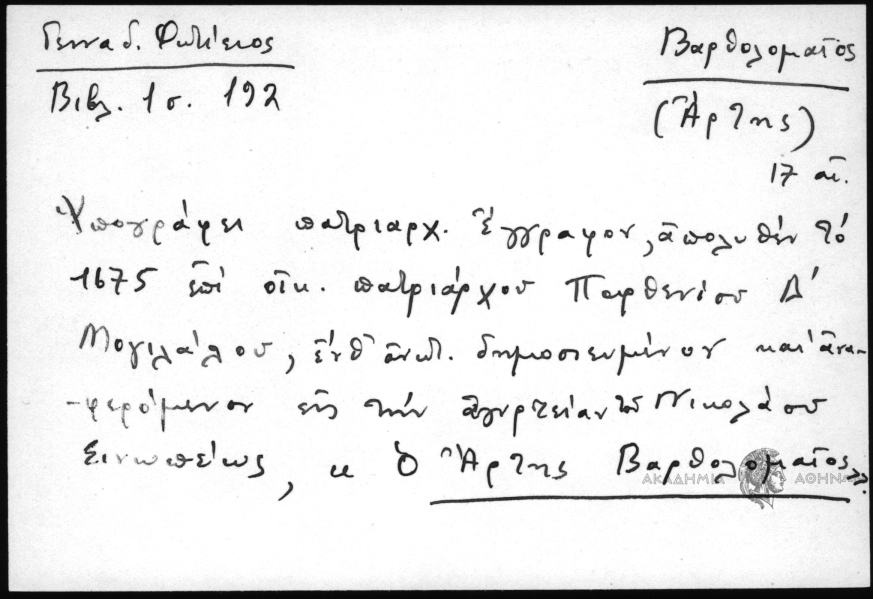 Γενναδ. Φωτίειος
Βιβλ. 1 σ. 192
Βαρθολομαῖος
(Ἄρτης)
17 αἰ.
Ὑπογράφει πατριαρχ. ἔγγραφον, ἀπολυθὲν τὸ
1675 ἐπὶ οἰκ. πατριάρχου Παρθενίου Δ'
Μογιλάλου, ἔνθ' ἀνωτ. δημοσιευμένον καὶ ἀνα-
-φερόμενον εἰς τὴν ἀγυρτείαν τοῦ Νικολάου
Σινωπέως, « Ὁ Ἄρτης Βαρθολομαῖος».
ΑΚΑΔΗΜΙΑ ΑΘΗΝΩΝ